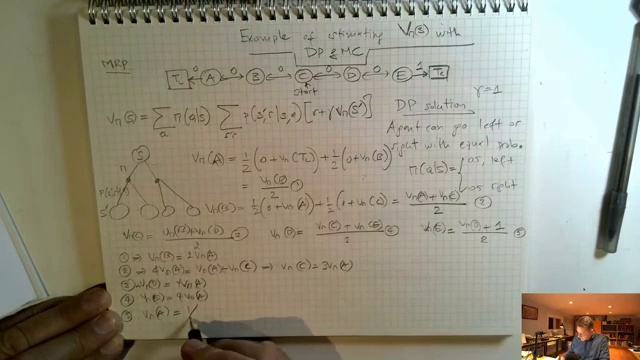 Example of estimating Vπ(s) with
DP & MC
MRP
T_L 0 A 0 B 0 C 0 D 0 E 1 T_R
start
Vπ(s) = Σ_a π(a|s) Σ_s'r p(s',r|s,a) [r+γ Vπ(s')]
DP solution γ=1
Agent can go left or
right with equal prob.
π(a|s) = { 0.5, left
0.5 right
S
π
s'
Vπ(A) = 1/2 (0 + Vπ(T_L)) + 1/2 (0 + Vπ(B))
= Vπ(B)/2 ①
Vπ(B) = 1/2 (0 + Vπ(A)) + 1/2 (0 + Vπ(C)) = (Vπ(A) + Vπ(C))/2 ②
Vπ(C) = (Vπ(B) + Vπ(D))/2 ③ Vπ(D) = (Vπ(C) + Vπ(E))/2 ④ Vπ(E) = (Vπ(D) + 1)/2 ⑤
① ⇒ Vπ(B) = 2Vπ(A)
② ⇒ 4Vπ(A) = Vπ(A) + Vπ(C) ⇒ Vπ(C) = 3Vπ(A)
③ ⇒ Vπ(D) = 4Vπ(A)
④ Vπ(E) =
⑤ Vπ(A) =